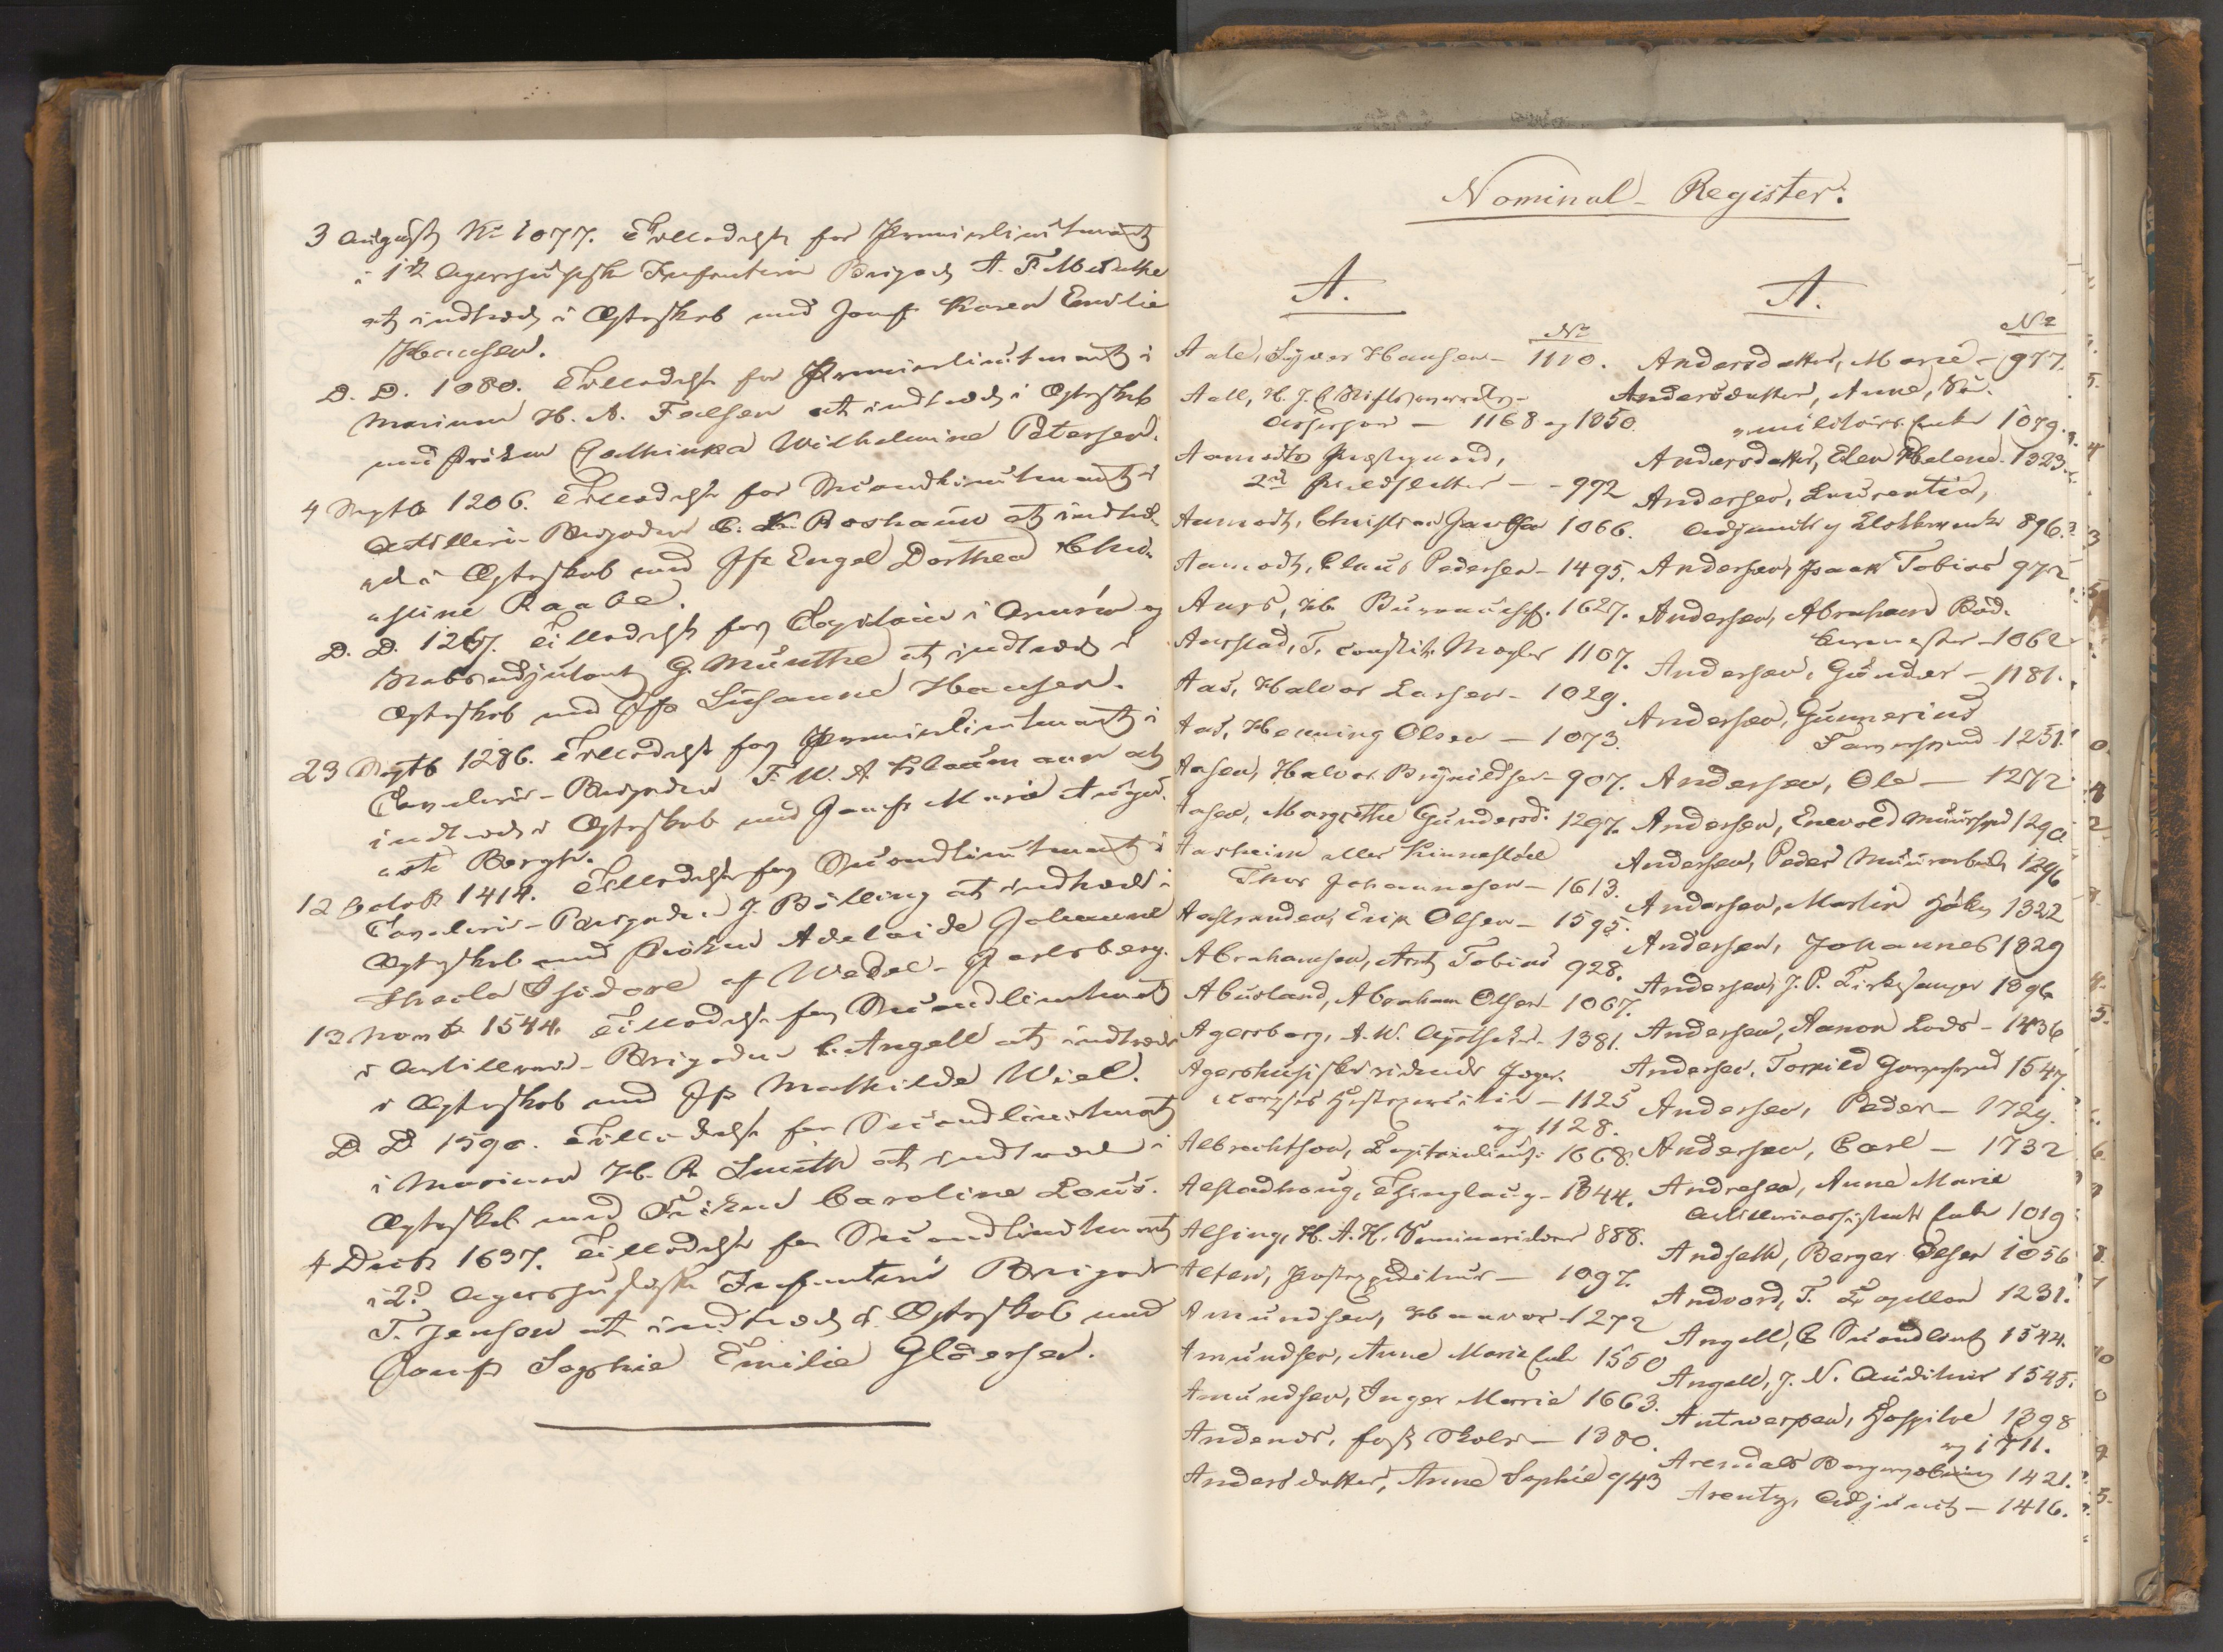 3 August No 1077. Tilladelse for Premierlieutenant
i 1ste Agershusiske Infanterie Brigade A. F. Munthe
at indtræde i Ægteskab med Jomfr Karen Emilie
Hansen.
D. D. 1080. Tilladelse for Premierlieutenant i
Marinen H. A. Falsen at indtræde i Ægteskab
med Frøken Cathinka Wilhelmine Petersen.
4 Septb 1206. Tilladelse for Secondlieutenant i
Artilleri-Brigaden C. Roshauw at indtræ-
de i Ægteskab med Jfr Engel Dorthea Chri-
stine Raabe.
D. D. 1267. Tilladelse for Capitain i Armeen og
Stabsadjutant G. Munthe at indtræde i
Ægteskab med Jfr Susanne Hansen.
23 Septb 1286. Tilladelse for Premierlieutenant i
Cavaleri-Brigaden F. W. A. Klaumann at
indtræde i Ægteskab med Jomfr Marie Augu-
sta Bergh.
12 Octob 1414. Tilladelse for Secondlieutenant i
Cavaleri-Brigaden J. Bølling at indtræde i
Ægteskab med Frøken Adelaide Johanne
Thecla Isidore af Wedel-Jarlsberg.
13 Novb 1544. Tilladelse for Secondlieutenant
i Artilleri-Brigaden C. Angell at indtræde
i Ægteskab med Jfr Mathilde Wiel.
D. D. 1590. Tilladelse for Secondlieutenant
i Marinen H. R. Smith at indtræde i
Ægteskab med Frøken Caroline Lous.
4 Decb 1637. Tilladelse for Secondlieutenant
i 2den Agershusiske Infanteri Brigade
T. Jensen at indtræde i Ægteskab med
Jomfr Sophie Emilie Gløersen.
Nominal-Register:
A.
No
Aale, Syver Hansen - 1110.
Aall, H. J. C. Stiftsoverrets-
Assessor - 1168 og 1850.
Aamodts Præstegaard,
2de - 972
Aamodt, Christian Jacobsen 1066.
Aamodt, Claus Pedersen - 1495.
Aars, Hb. Bureauchef. 1627.
Aarstad, T. constit. Mægler 1107.
Aas, Halvor Larsen - 1029.
Aas, Henning Olsen - 1073.
Aasen, Halvor Brynildsen - 907.
Aasen, Margrethe Gundersd: 1297.
Aasheim eller Kinnestöel
Thor Johannesen - 1613.
Aastranden, Erik Olsen - 1595.
Abrahamsen, Arnt Tobias 928.
Abusland, Abraham Olsen - 1067.
Agersborg, A. W. Apotheker - 1381.
Agershusiske ridende Jæger-
corpses - 1125
og 1128.
Albrechtson, Capitainlieut: 1668.
Alstadhoug, Thinglaug - 1344.
Alsing, H. A. H. Seminarist 888.
Alten, Postexpediteur - 1097.
Amundsen, Haavor - 1272
Amundsen, Anne Marie Enke 1550
Amundsen, Inger Marie 1663.
Andenæs, fast Skole - 1380.
Andersdatter, Anne Sophie 943
A.
No
Andersdatter, Marie - 977.
Andersdatter, Anne,
Enke 1079.
Andersdatter, Elen Helene - 1323.
Andersen, Laurentia,
Adjunct og Klokkers Enke 896.
Andersen, Isaak Tobias 972
Andersen, Abraham Bød-
kermester - 1062
Andersen, Gunder - 1181.
Andersen, Gunnerius
Farversvend - 1251.
Andersen, Ole - 1272
Andersen, Enevold Muursvend 1290.
Andersen, Peder Muurarbeid. 1296
Andersen, Martin Höker 1322
Andersen, Johannes 1329
Andersen, J. P. Kirkesanger 1396
Andersen, Aanon Lods - 1436
Andersen, Torkild Garversvend 1547.
Andersen, Peder - 1729.
Andersen, Carl - 1732
Andresen, Anne Marie
Enke 1019
Andsæth, Berger Olsen 1056
Andvord, T. Capellan 1231.
Angell, C. Secondlieut 1544.
Angell, J. N. Auditeur 1545.
Antwerpen, Hospital 1398
og 1711.
Arendals Borgerskab 1421.
Arentz, Adjunct - 1416.